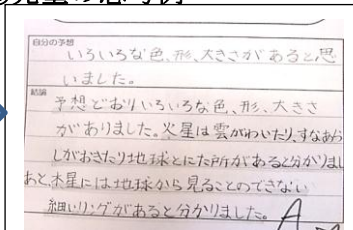 自分の予想
いろいろな色、形、大きさがあると思
いました。
結論
予想どおりいろいろな色、形、大きさ
がありました。火星は雲がわいたり、すなあら
しがおきたり地球とにた所があると分かりまし
あと、木星には地球から見ることのできない
細いリングがあると分かりました。
A